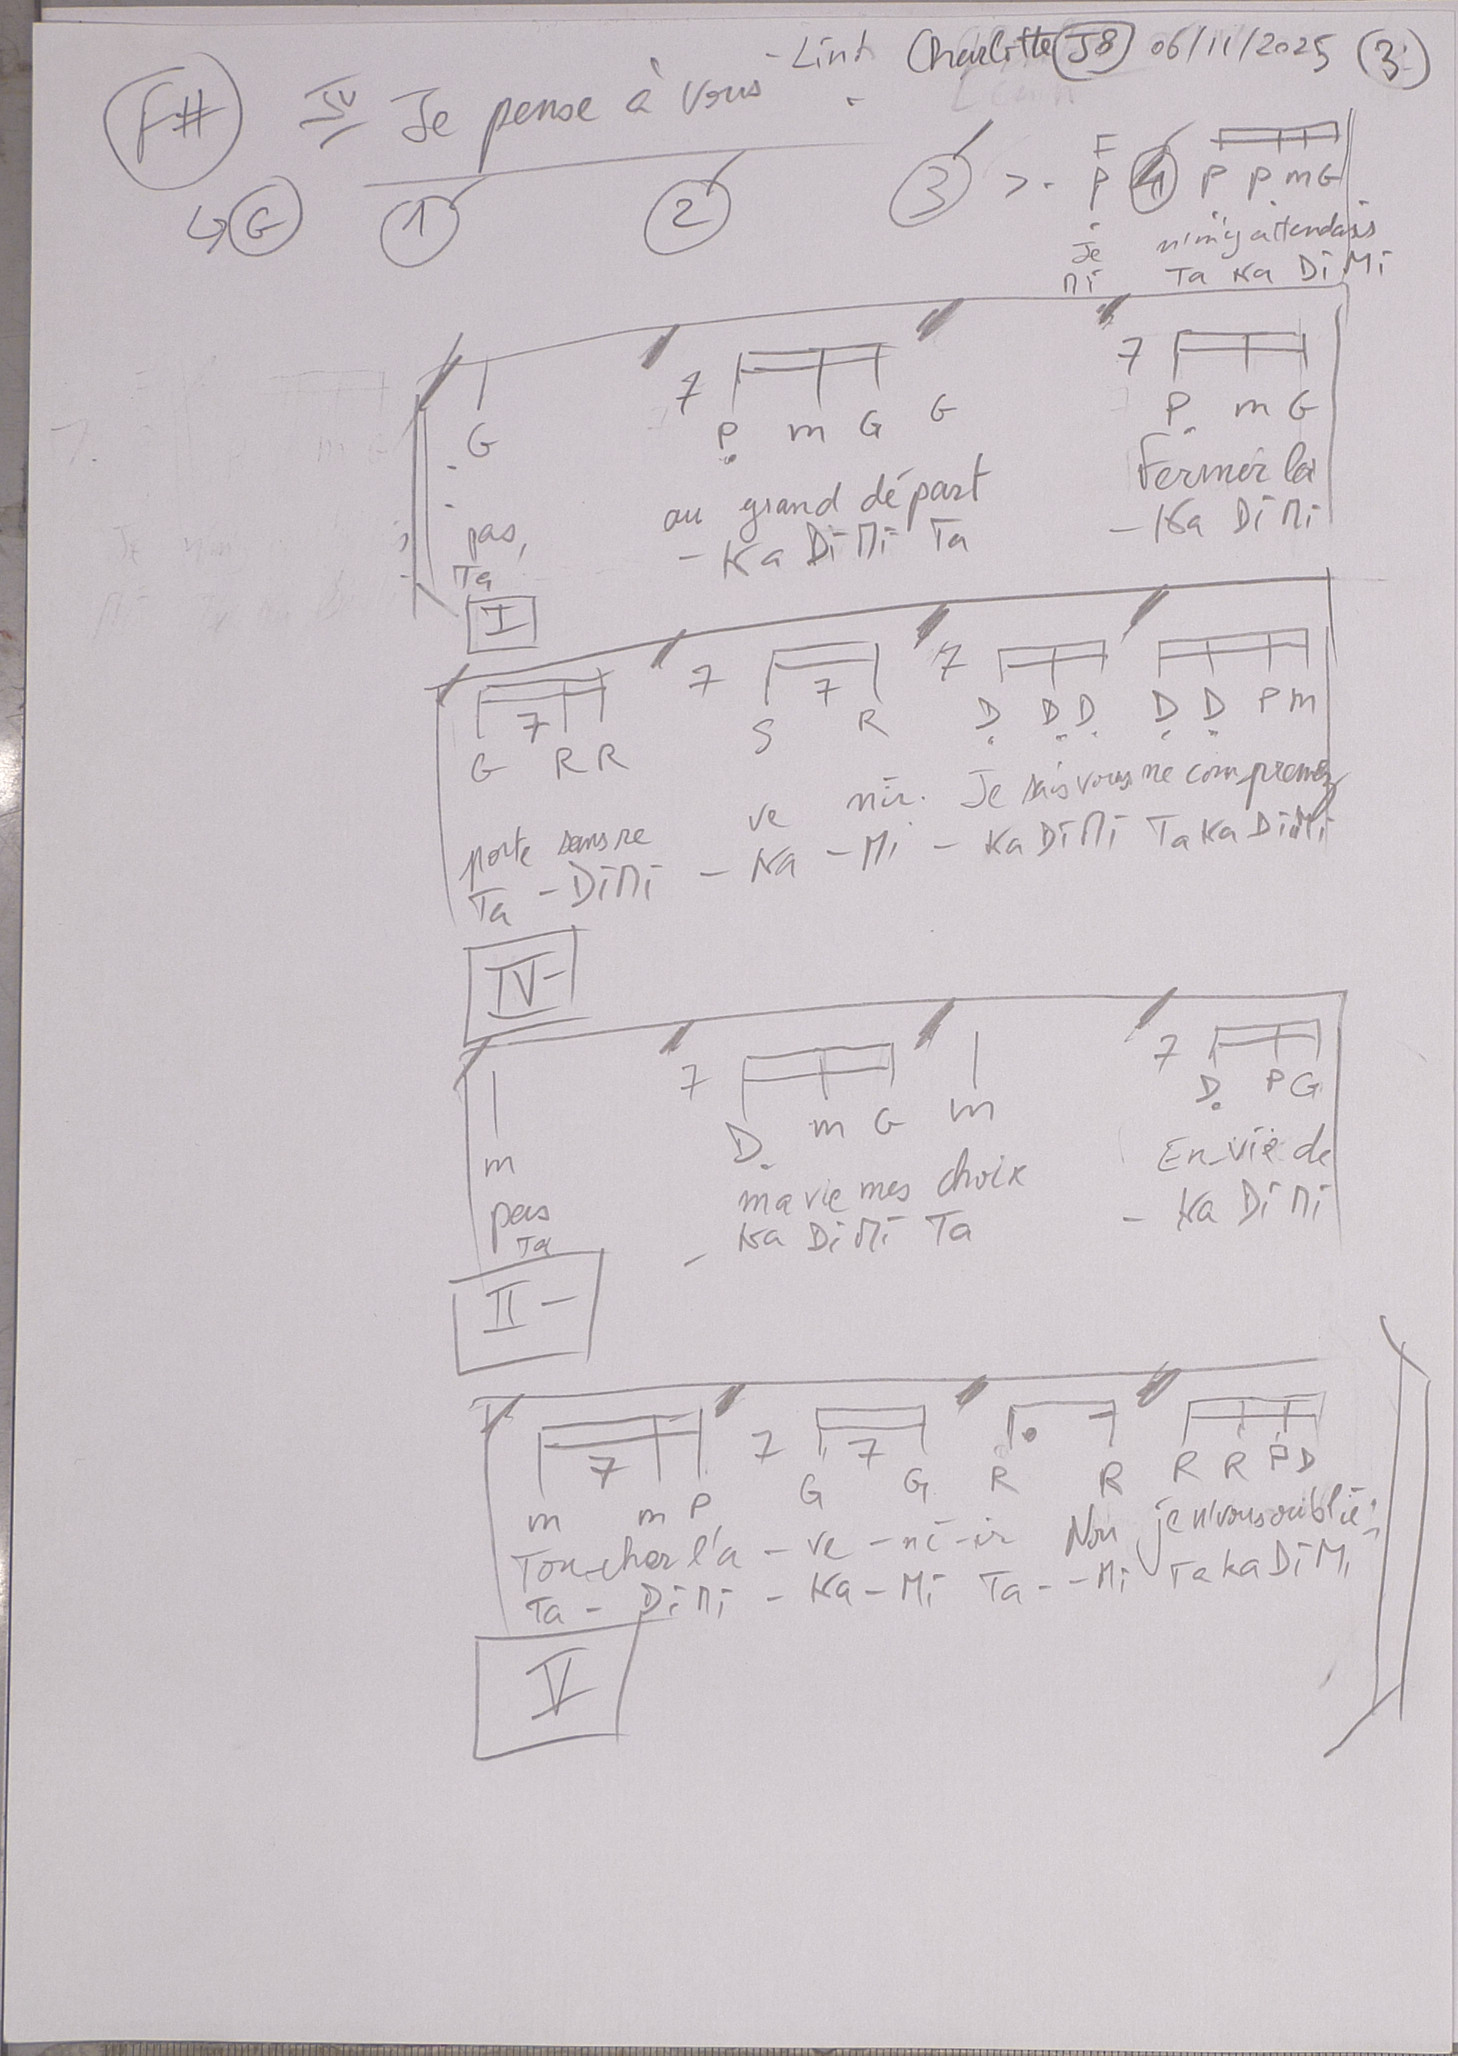 - Linh Charlotte J8 06/11/2025 3
F# IV Je pense à vous
↳ G 1 2 3 7. P 4 P P m G
Je n'm'y attendais
Mi Ta Ka Di Mi
G 7 P m G G 7 P m G
pas, au grand départ Fermer la
Ta - Ka Di Mi Ta - Ka Di Mi
I
G 7 R R 7 S 7 R 7 D D D D D P m
porte sans re ve nir. Je sais vous ne comprenez
Ta - Di Mi - Ka - Mi - Ka Di Mi Ta Ka Di Mi
IV-
m 7 D m G m 7 D P G
pas ma vie mes choix En-vie de
Ta - Ka Di Mi Ta - Ka Di Mi
II -
m 7 m P 7 G 7 G R . R R R P D
Tou-cher l'a - ve - ni - ir Non je n'vous oublie
Ta - Di Mi - Ka - Mi Ta - - Mi Ta ka Di Mi
V